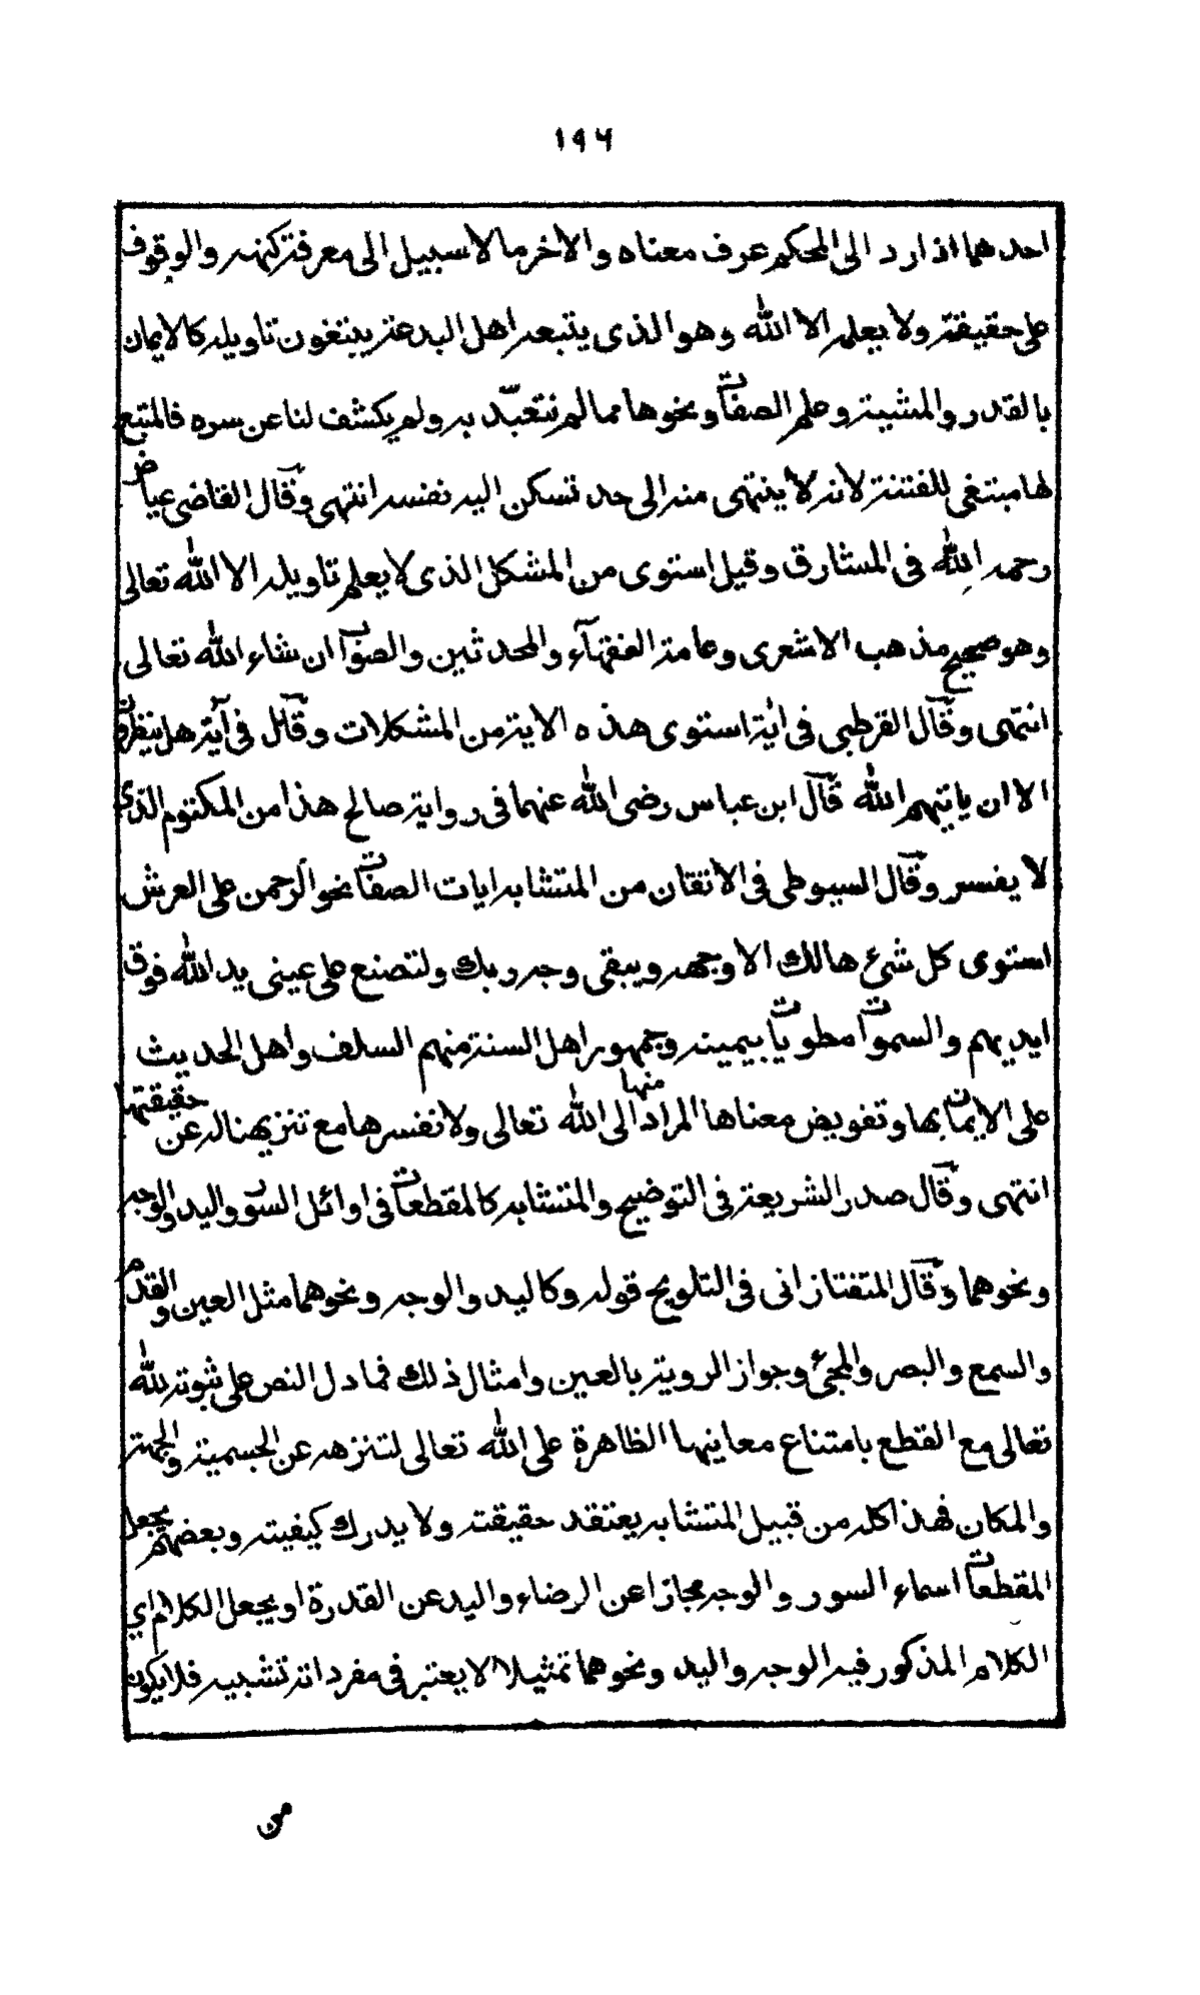 ١٩٦
احدهما اذا رد الى المحكم عرف معناه والاخر ما لا سبيل الى معرفة كنهه والوقوف
على حقيقته ولا يعلمه الا الله وهو الذى يتبعه اهل البدعة يبتغون تاويله كالايمان
بالقدر والمشية وعلم الصفات ونحوها مما لم نتعبّد به ولم يكشف لنا عن سره فالمتبع
لها مبتغى للفتنة لانه لا ينتهى منه الى حد تسكن اليه نفسه انتهى وقال القاضى عياض
رحمه الله فى المشارق وقيل استوى من المشكل الذى لا يعلم تاويله الا الله تعالى
وهو صحيح مذهب الاشعرى وعامة الفقهآء والمحدثين والصواب ان شاء الله تعالى
انتهى وقال القرطبى فى اية استوى هذه الاية من المشكلات وقال فى آية هل ينظرون
الا ان ياتيهم الله قال ابن عباس رضى الله عنهما فى رواية صالح هذا من المكتوم الذى
لا يفسر وقال السيوطى فى الاتقان من المتشابه ايات الصفات نحو الرحمن على العرش
استوى كل شئ هالك الا وجهه ويبقى وجه ربك ولتصنع على عينى يد الله فوق
ايديهم والسموات مطويات بيمينه وجمهور اهل السنة منهم السلف واهل الحديث
على الايمان بها وتفويض معناها المراد منها الى الله تعالى ولا نفسرها مع تنزيهنا له عن حقيقتها
انتهى وقال صدر الشريعة فى التوضيح والمتشابه كالمقطعات فى اوائل السور واليد والوجه
ونحوهما وقال المتفتازانى فى التلويح قوله وكاليد والوجه ونحوهما مثل العين والقدم
والسمع والبصر والمجئ وجواز الروية بالعين وامثال ذلك فما دل النص على ثبوته لله
تعالى مع القطع بامتناع معانيها الظاهرة على الله تعالى لتنزهه عن الجسمية والجهة
والمكان فهذا كله من قبيل المتشابه يعتقد حقيقته ولا يدرك كيفيته وبعضهم يجعل
المقطعات اسماء السور والوجه مجازا عن الرضاء واليد عن القدرة او يجعل الكلام اي
الكلام المذكور فيه الوجه واليد ونحوهما تمثيلا لا يعتبر فى مفرداته تشبيه فلا يكون
من